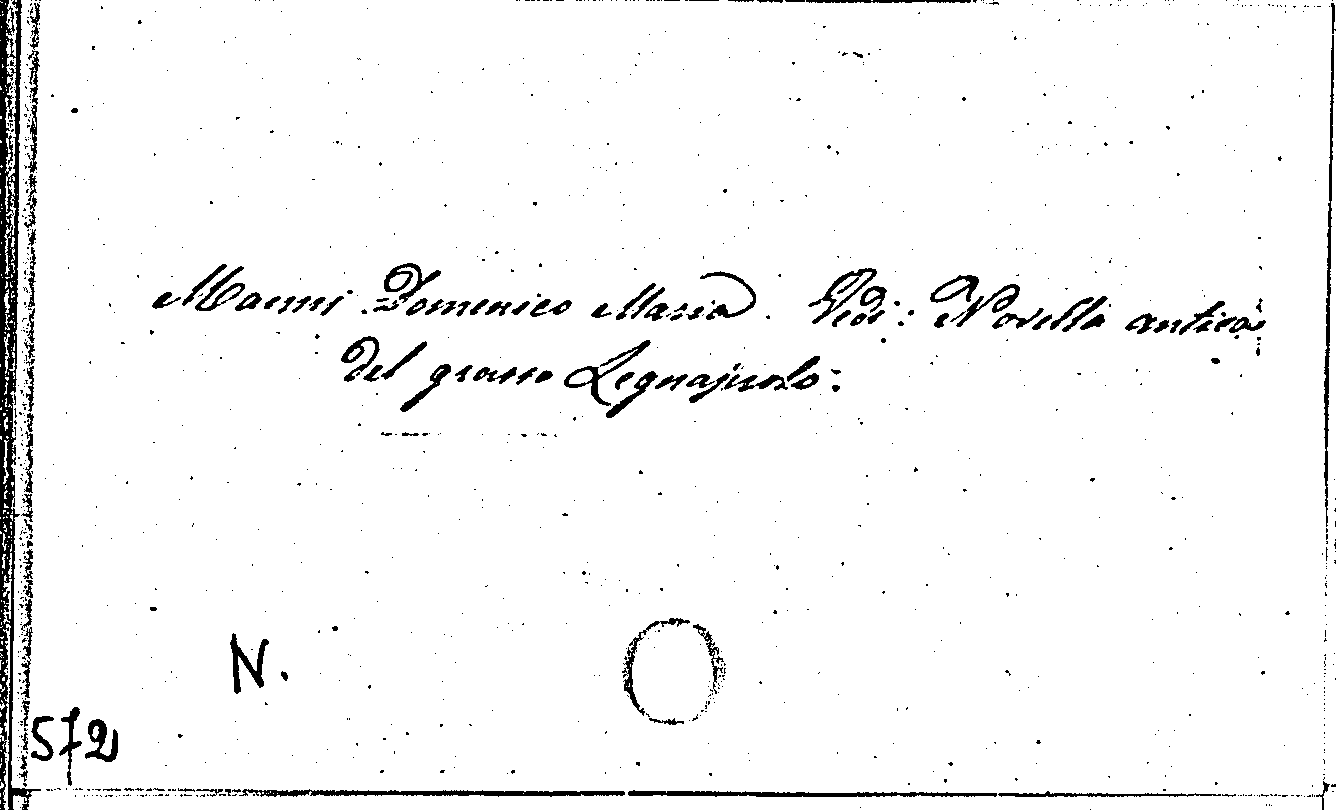 Manni Domenico Maria. Vedi: Novella antica
del grasso Legnajuolo.
N.
572